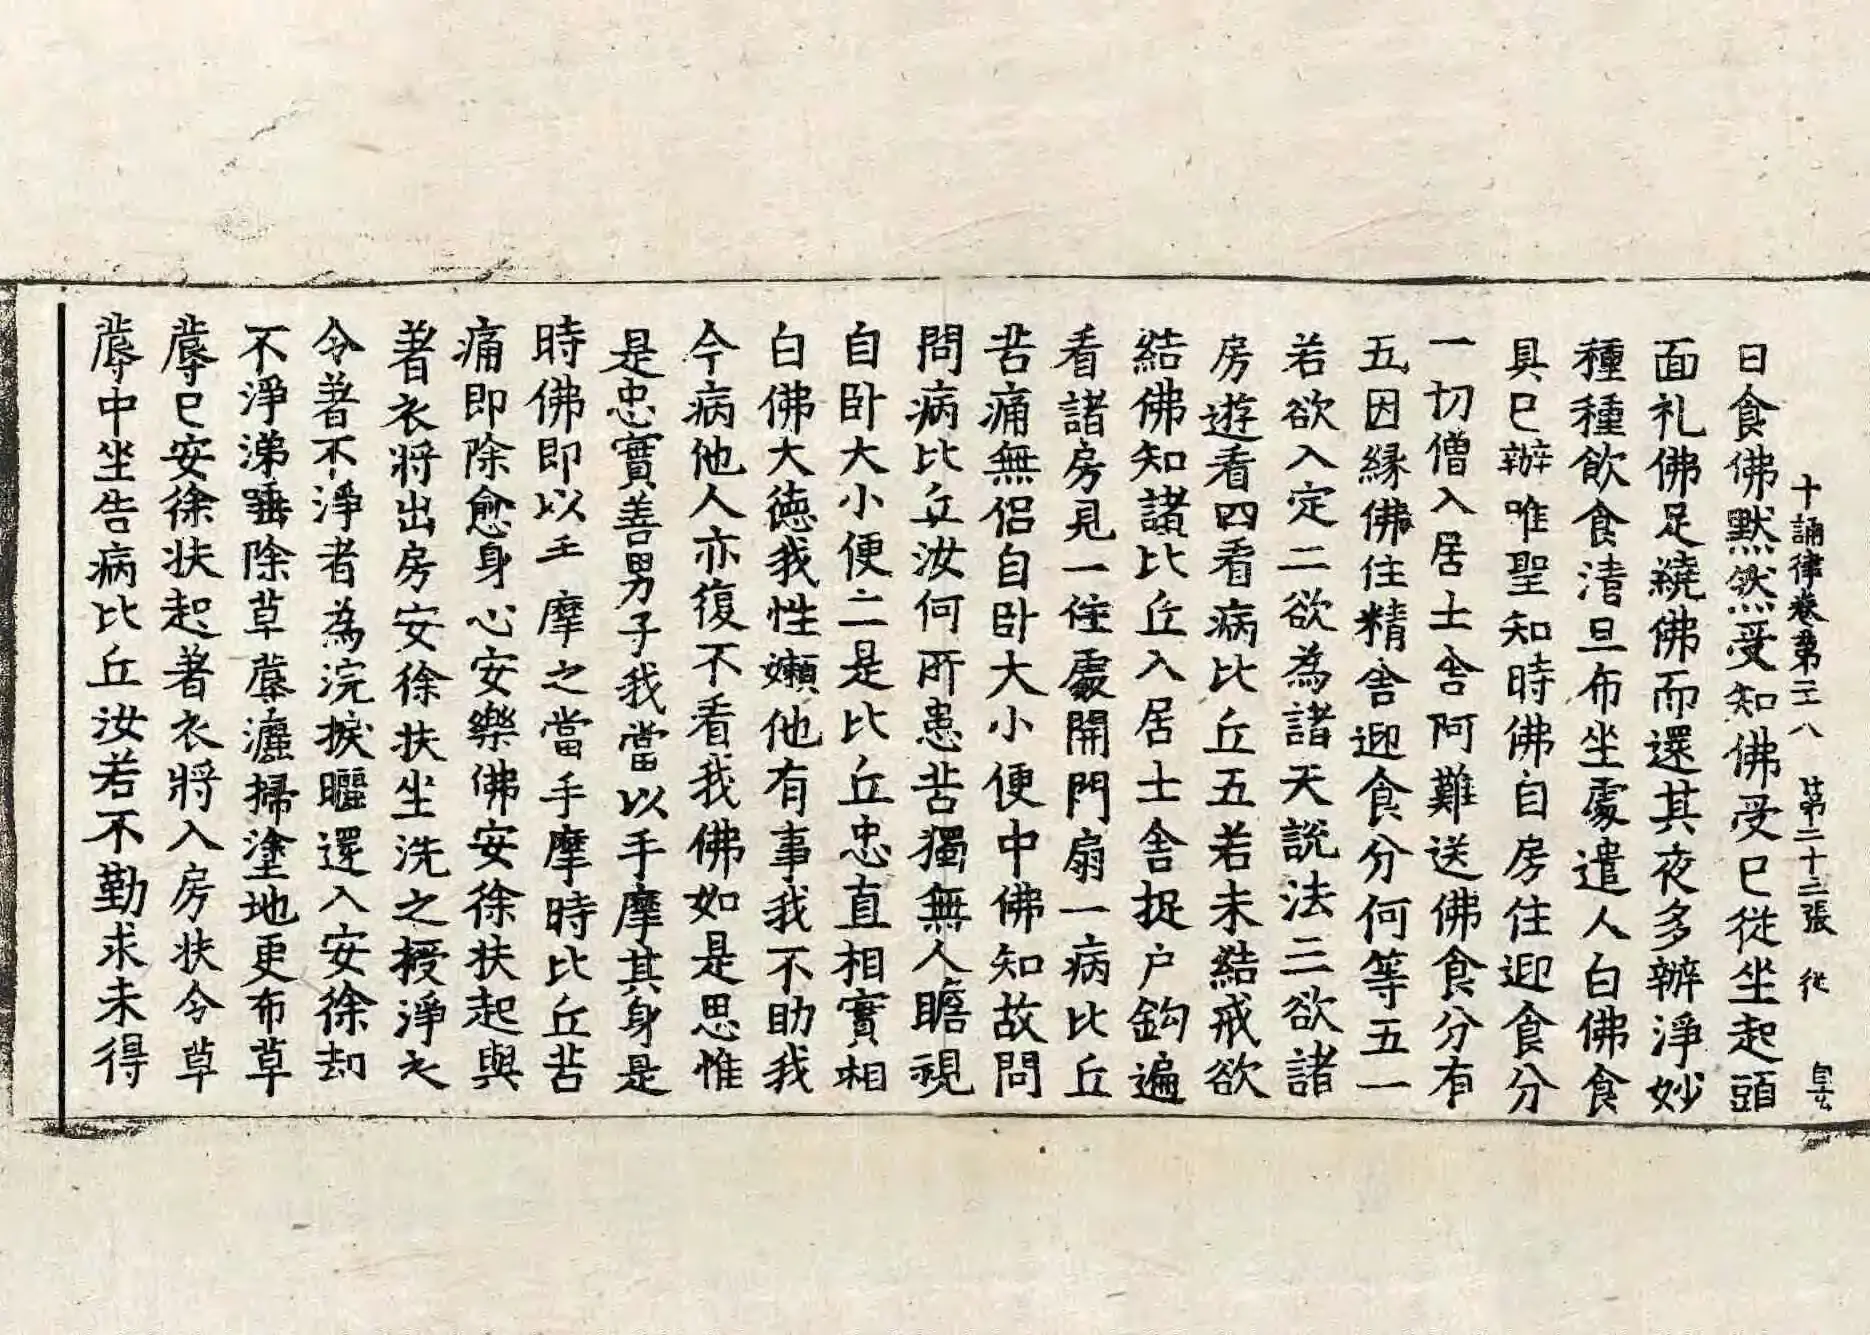 十誦律卷第二八 第二十三張 從
日食佛默然受知佛受已從坐起頭
面礼佛足繞佛而還其夜多辦淨妙
種種飲食清旦布坐處遣人白佛食
具已辦唯聖知時佛自房住迎食分
一切僧入居士舍阿難送佛食分有
五因緣佛住精舍迎食分何等五一
若欲入定二欲為諸天說法三欲諸
房遊看四看病比丘五若未結戒欲
結佛知諸比丘入居士舍捉户鈎遍
看諸房見一住處開門扇一病比丘
苦痛無侶自卧大小便中佛知故問
問病比丘汝何所患苦獨無人瞻視
自卧大小便二是比丘忠直相實相
白佛大德我性嬾他有事我不助我
今病他人亦復不看我佛如是思惟
是忠實善男子我當以手摩其身是
時佛即以手摩之當手摩時比丘苦
痛即除愈身心安樂佛安徐扶起與
著衣將出房安徐扶坐洗之授淨衣
令著不淨者為浣捩曬還入安徐却
不淨涕唾除草蓐灑掃塗地更布草
蓐已安徐扶起著衣將入房扶令草
蓐中坐告病比丘汝若不勤求未得